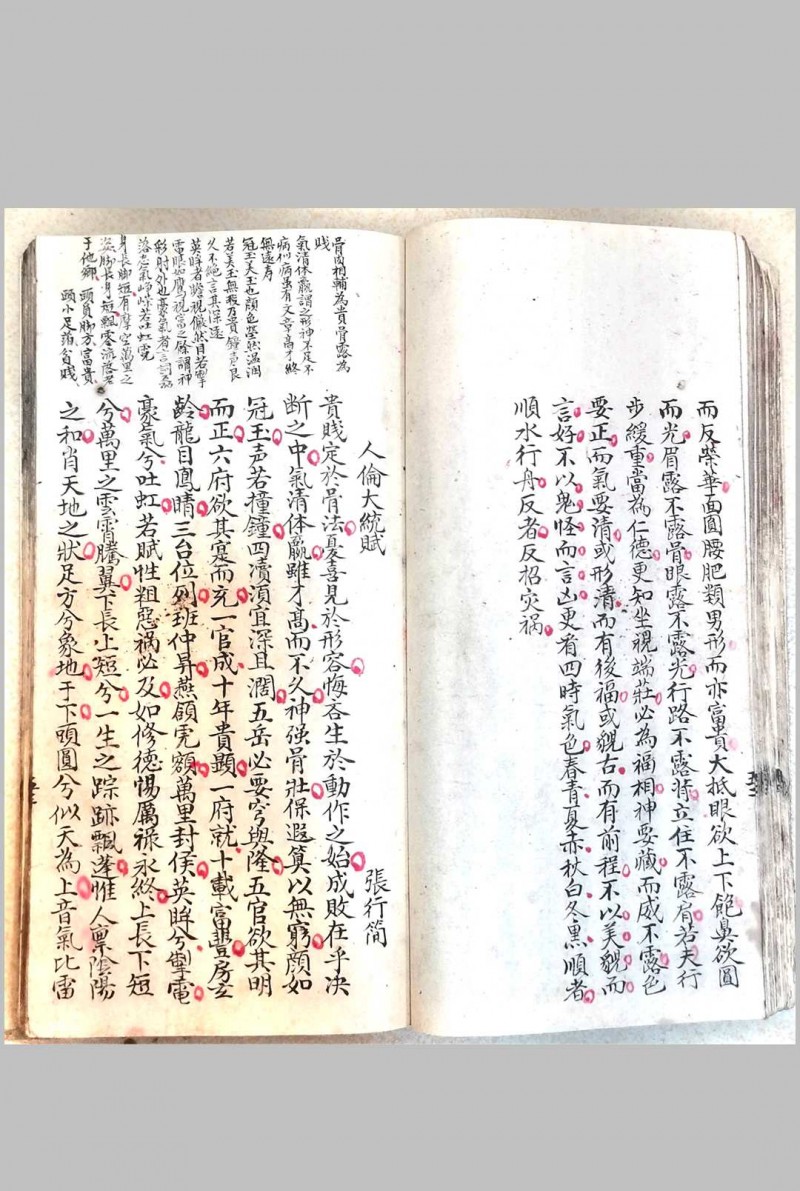 而反榮華面圓腰肥類男形而亦富貴大抵眼欲上下飽鼻欲圓
而光眉露不露骨眼露不露光行路不露背立住不露肩若夫行
步緩重當為仁德更知坐視端莊必為福相神要藏而威不露色
要正而氣要清或形清而有後福或貌古而有前程不以美貌而
言好不以鬼怪而言凶更看四時氣色春青夏赤秋白冬黑順者
順水行舟反者反招灾禍
人倫大統賦
張行簡
骨肉相輔為貴骨露為
賤
氣清体羸謂之形神不足不
病似病虽有文章高才終
無遠寿
冠玉美玉也顔色瑩然温潤
若美玉無瑕乃貴鐘声良
久不絶言其深遠
英眸者瞻視儼然目若掣
電眼如鷹視富之餘謂神
彩射外也豪氣者言詞磊
落志氣崢嶸若吐虹霓
身長脚短有摩空萬里之
姿脚長身短飄零流落者
于他鄉
頭員脚方富貴
頭小足薄貧賤
貴賤定於骨法憂喜見於形容悔吝生於動作之始成敗在乎决
断之中氣清体羸雖才高而不久神强骨壯保遐筭以無窮顔如
冠玉声若撞鐘四瀆須宜深且濶五岳必要穹與隆五官欲其明
而正六府欲其寔而充一官成十年貴顯一府就十載富豐房玄
齡龍目鳳睛三台位列班仲昇燕頷虎額萬里封侯英眸兮掣電
豪氣兮吐虹若賦性粗惡禍必及如修德惕厲祿永終上長下短
兮萬里之雲霄騰翼下長上短兮一生之踪跡飄蓬惟人禀陰陽
之和肖天地之狀足方兮象地于下頭圓兮似天為上音氣比雷